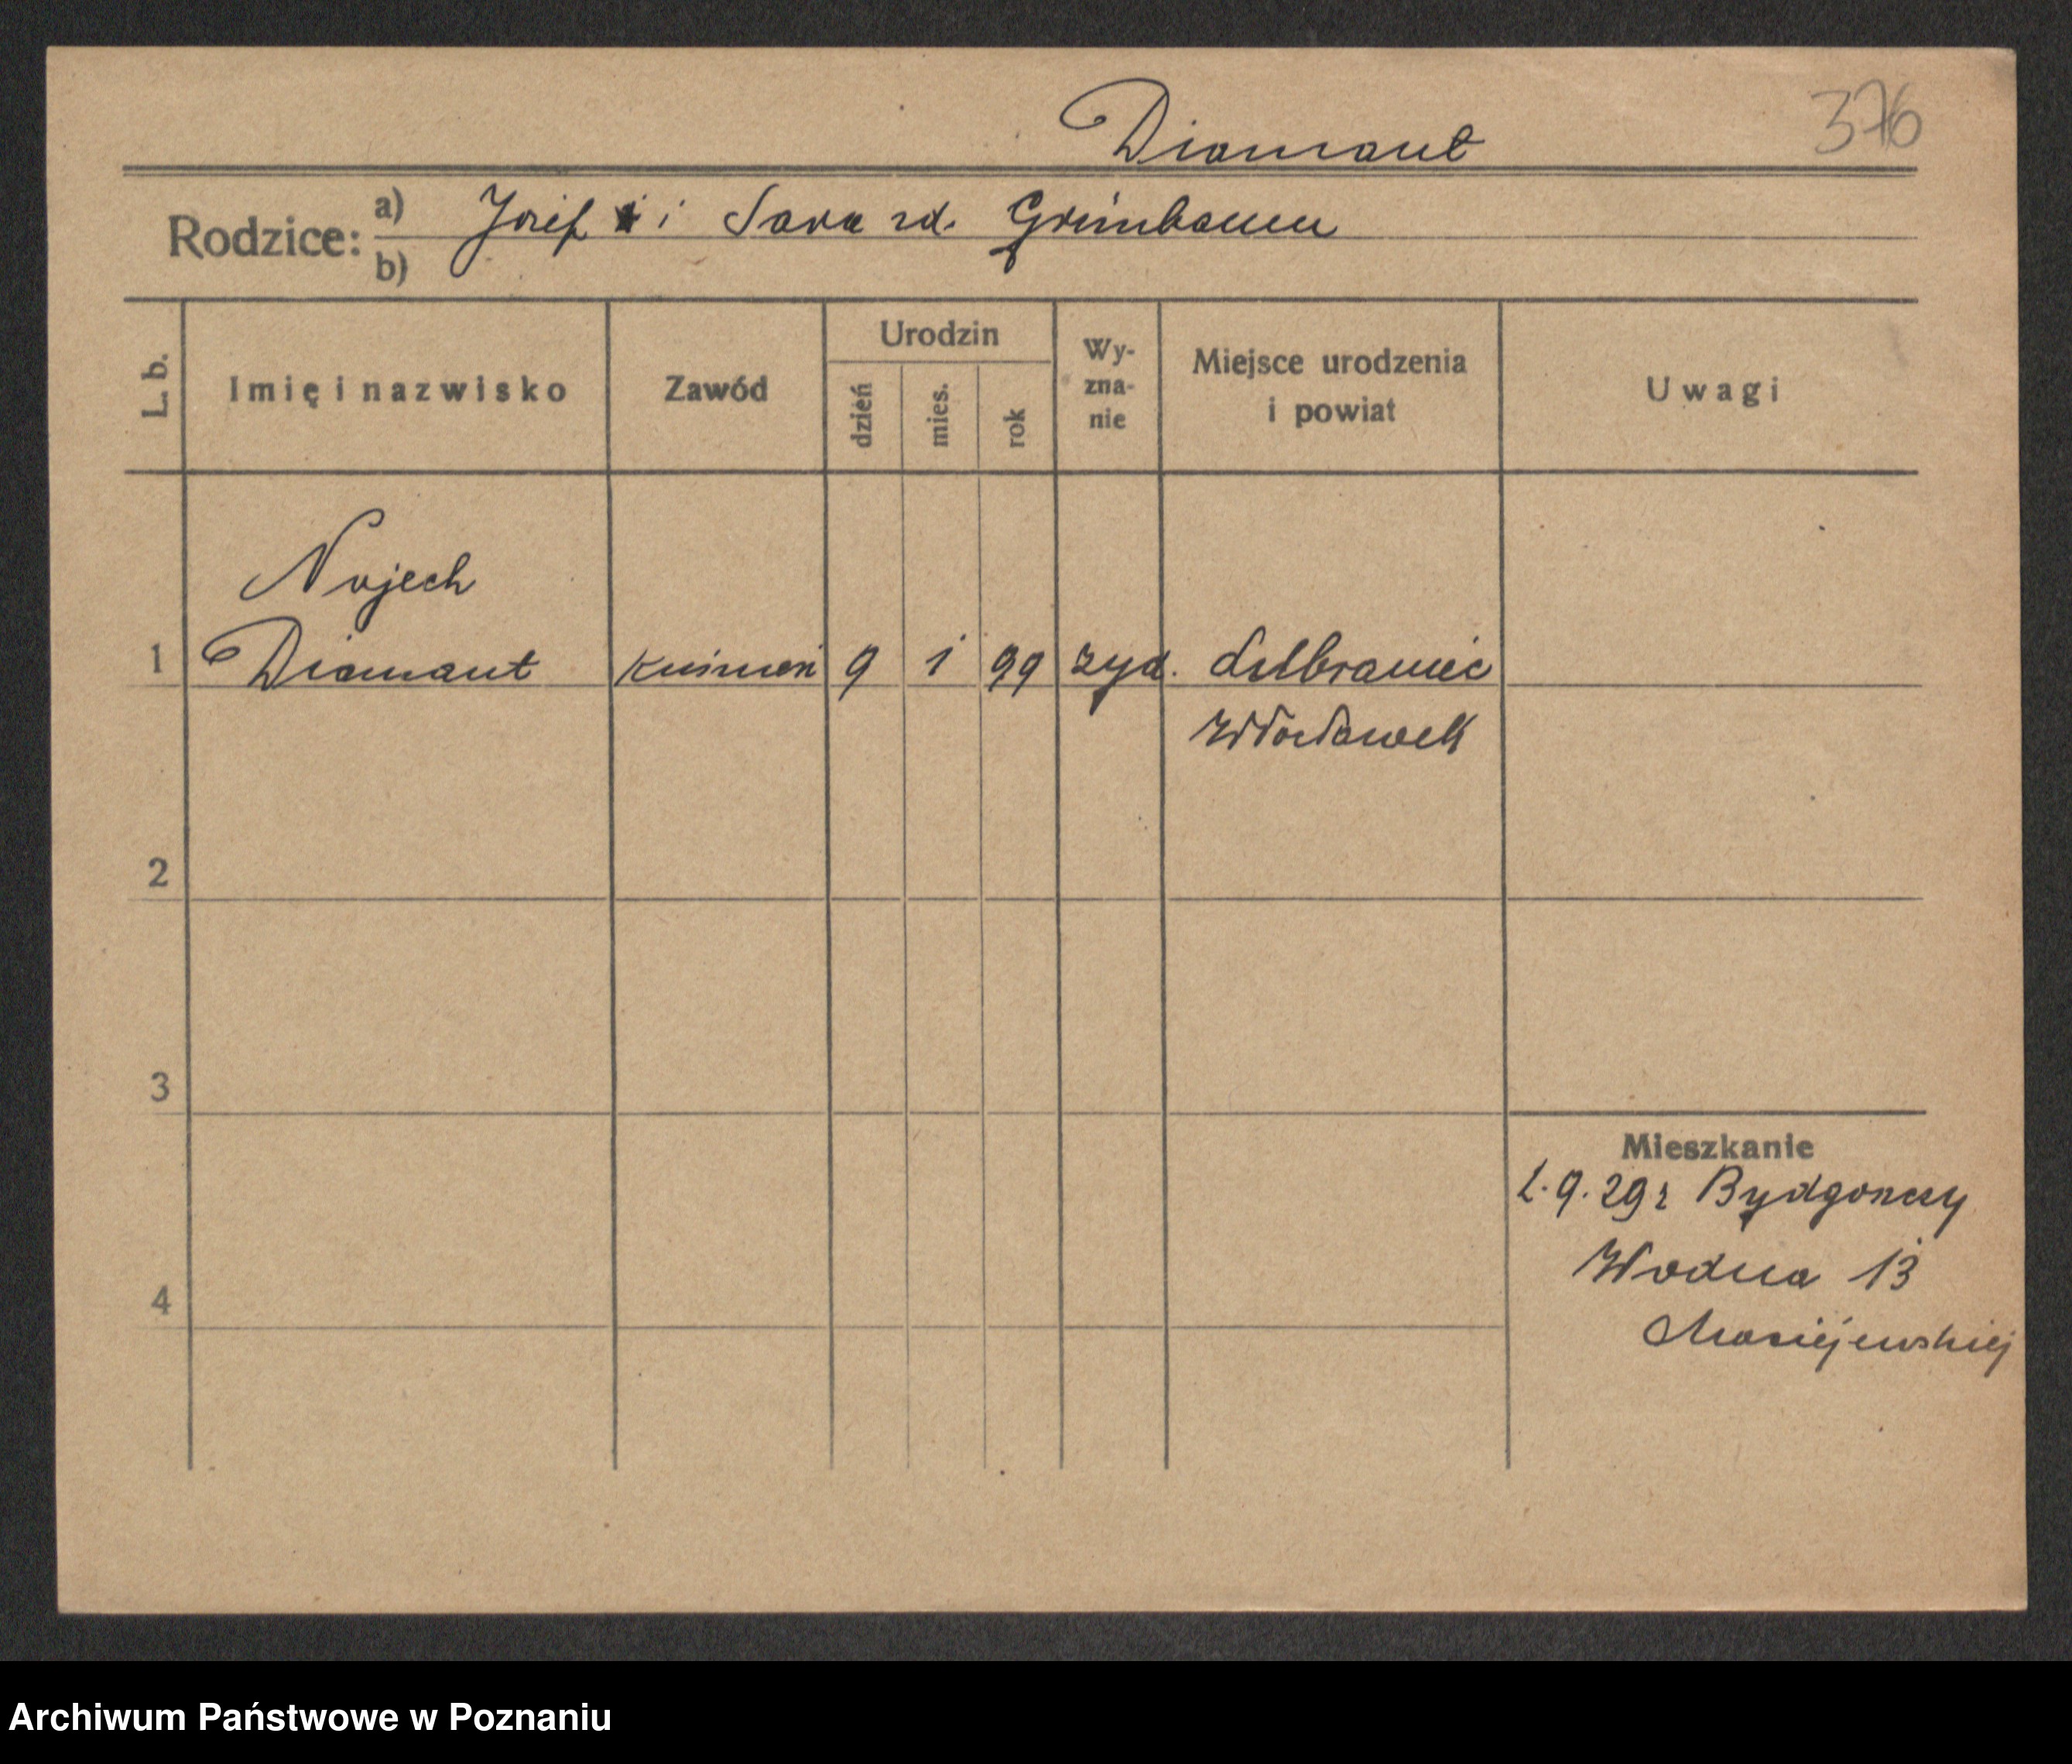 Diamant
376
Rodzice: a) Josef i Sara zd. Grünbaum
b)
L. b.
Imię i nazwisko
Zawód
Urodzin
dzień
mies.
rok
Wy-
zna-
nie
Miejsce urodzenia
i powiat
Uwagi
Nojech
1 Diamant kuśnierz 9 1 99 żyd. Lubraniec
Włocławek
2
3
4
Mieszkanie
2.9.29r Bydgoszczy
Wodna 13
Maciejewskiej
Archiwum Państwowe w Poznaniu